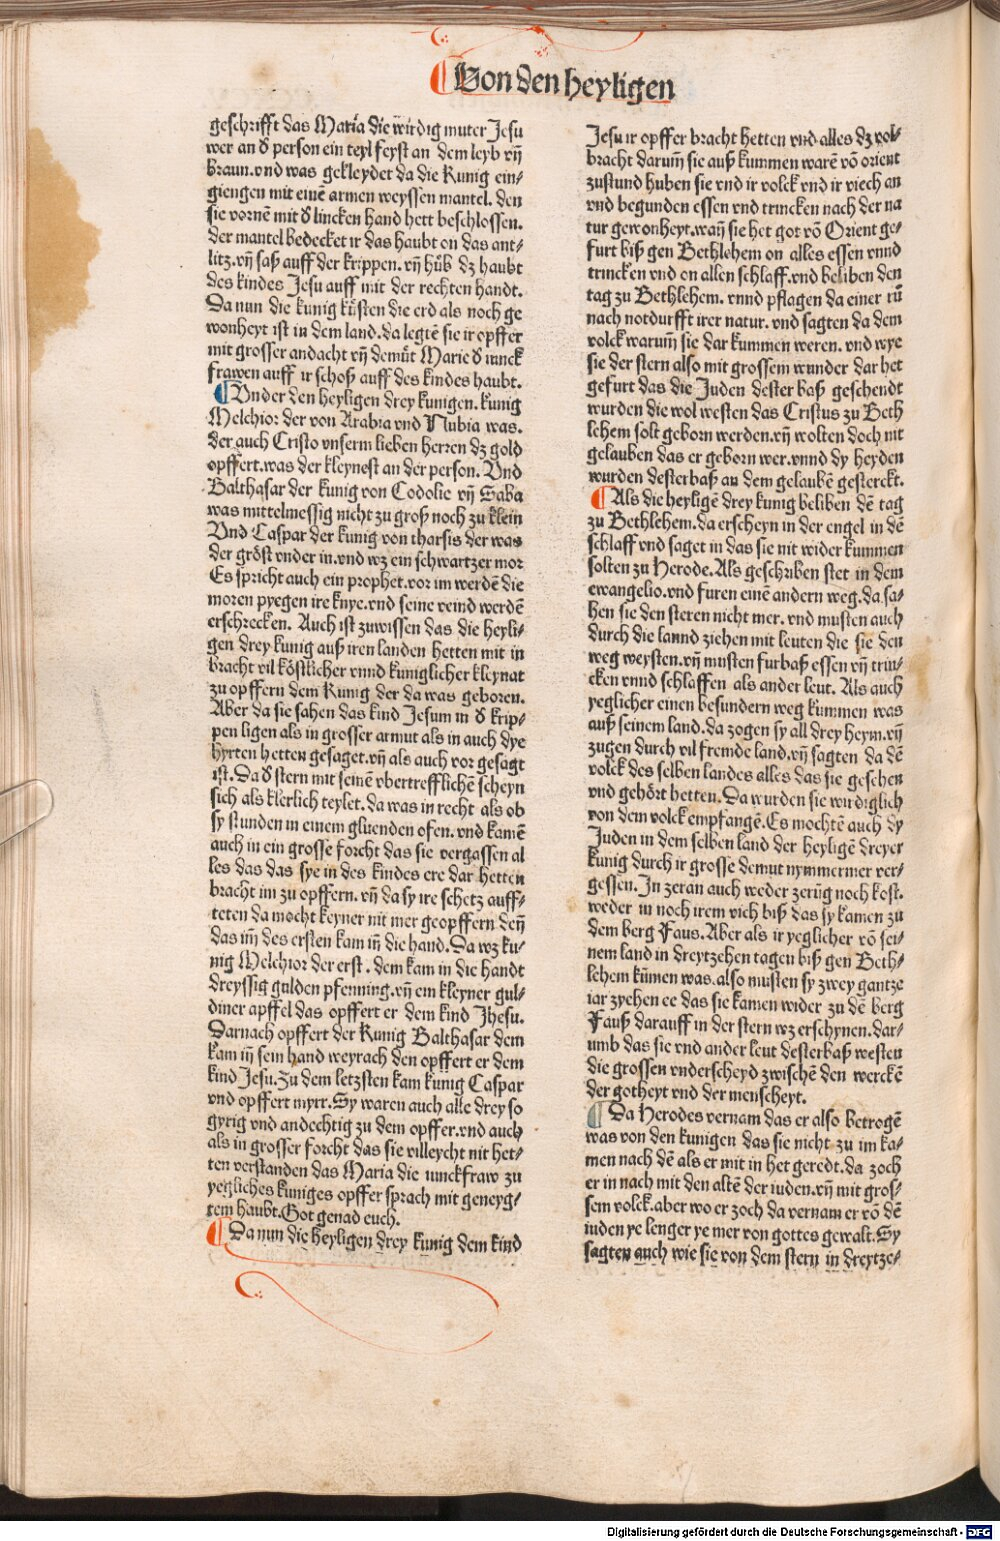 Von den heyligen
geschrifft das Maria die wirdig muter Jesu
wer an d̕ person ein teyl feyst an dem leyb vn̄
braun. vnd was gekleydet da die Kunig ein⸗
giengen mit einē armen weyssen mantel. den
sie vornē mit d̕ lincken hand hett beschlossen.
der mantel bedecket ir das haubt on das ant⸗
litz. vn̄ saß auff der krippen. vn̄ hůb dz haubt
des kindes Jesu auff mit der rechten handt.
Da nun die kunig kůsten die erd als noch ge
wonheyt ist in dem land. da legtē sie ir opffer
mit grosser andacht vn̄ demůt Marie d̕ iunck
frawen auff ir schoß auff des kindes haubt.
Vnder den heyligen drey kunigen. kunig
Melchior der von Arabia vnd Nubia was.
der auch Cristo vnserm lieben herren dz gold
opffert. was der kleynest an der person. Vnd
Balthasar der kunig von Codolie vn̄ Saba
was mittelmessig nicht zu groß noch zu klein
Vnd Caspar der kunig von tharsis der was
der gröst vnder in. vnd wz ein schwartzer mor
Es spricht auch ein prophet. vor im werdē die
moren pyegen ire knye. vnd seine veind werdē
erschrecken. Auch ist zuwissen das die heyli⸗
gen drey kunig auß iren landen hetten mit in
bracht vil köstlicher vnnd kuniglicher kleynat
zu opffern dem Kunig der da was geboren.
Aber da sie sahen das kind Jesum in d̕ krip⸗
pen ligen als in grosser armut als in auch dye
hyrten hetten gesaget. vn̄ als auch vor gesagt
ist. Da d̕ stern mit seinē vbertrefflichē scheyn
sich als klerlich teylet. da was in recht als ob
sy stunden in einem gluenden ofen. vnd kamē
auch in ein grosse forcht das sie vergassen al
les das das sye in des kindes ere dar hetten
bracht im zu opffern. vn̄ da sy ire schetz auff⸗
teten da mocht keyner nit mer geopffern den̄
das im̄ des ersten kam im̄ die hand. Da wz ku⸗
nig Melchior der erst. dem kam in die handt
dreyssig gulden pfenning. vn̄ ein kleyner gul⸗
diner apffel das opffert er dem kind Jhesu.
Darnach opffert der Kunig Balthasar dem
kam in̄ sein hand weyrach den opffert er dem
kind Jesu. Zu dem letzsten kam kunig Caspar
vnd opffert myrr. Sy waren auch alle drey so
gyrig vnd andechtig zu dem opffer. vnd auch
als in grosser forcht das sie villeycht nit het⸗
ten verstanden das Maria die iunckfraw zu
yetzliches kuniges opffer sprach mit geneyg⸗
tem haubt. Got genad euch.
Da nun die heyligen drey kunig dem kind
Jesu ir opffer bracht hetten vnd alles dz vol⸗
bracht darum̄ sie auß kummen warē vō orient
zustund huben sie vnd ir volck vnd ir viech an
vnd begunden essen vnd trincken nach der na
tur gewonheyt. wan̄ sie het got vō Orient ge⸗
furt biß gen Bethlehem on alles essen vnnd
trincken vnd on allen schlaff. vnd beliben den
tag zu Bethlehem. vnnd pflagen da einer rů
nach notdurfft irer natur. vnd sagten da dem
volck warum̄ sie dar kummen weren. vnd wye
sie der stern also mit grossem wunder dar het
gefurt das die Juden dester baß geschendt
wurden die wol westen das Cristus zu Beth
lehem solt geborn werden. vn̄ wolten doch nit
gelauben das er geborn wer. vnnd dy heyden
wurden desterbaß an dem gelaubē gesterckt.
Als die heyligē drey kunig beliben dē tag
zu Bethlehem. da erscheyn in der engel in dē
schlaff vnd saget in das sie nit wider kummen
solten zu Herode. Als geschriben stet in dem
ewangelio. vnd furen einē andern weg. da sa⸗
hen sie den steren nicht mer. vnd musten auch
durch die lannd ziehen mit leuten die sie den
weg weysten. vn̄ musten furbaß essen vn̄ trin⸗
cken vnnd schlaffen als ander leut. Als auch
yeglicher einen besundern weg kummen was
auß seinem land. da zogen sy all drey heym. vn̄
zugen durch vil fremde land. vn̄ sagten da dē
volck des selben landes alles das sie gesehen
vnd gehört hetten. Da wurden sie wirdiglich
von dem volck empfangē. Es mochtē auch dy
Juden in dem selben land der heyligē dreyer
kunig durch ir grosse demut nymmermer ver⸗
gessen. In zeran auch weder zerūg noch kost.
weder in noch irem vich biß das sy kamen zu
dem berg Faus. Aber als ir yeglicher vō sei⸗
nem land in dreytzehen tagen biß gen Beth⸗
lehem kūmen was. also musten sy zwey gantze
iar zyehen ee das sie kamen wider zu dē berg
Fauß darauff in der stern wz erschynen. dar⸗
umb das sie vnd ander leut desterbaß westen
die grossen vnderscheyd zwischē den werckē
der gotheyt vnd der menscheyt.
Da Herodes vernam das er also betrogē
was von den kunigen das sie nicht zu im ka⸗
men nach dē als er mit in het geredt. da zoch
er in nach mit den altē der iuden. vn̄ mit gros⸗
sem volck. aber wo er zoch da vernam er vō dē
iuden ye lenger ye mer von gottes gewalt. Sy
sagten auch wie sie von dem stern in dreytze⸗
Digitalisierung gefördert durch die Deutsche Forschungsgemeinschaft - DFG